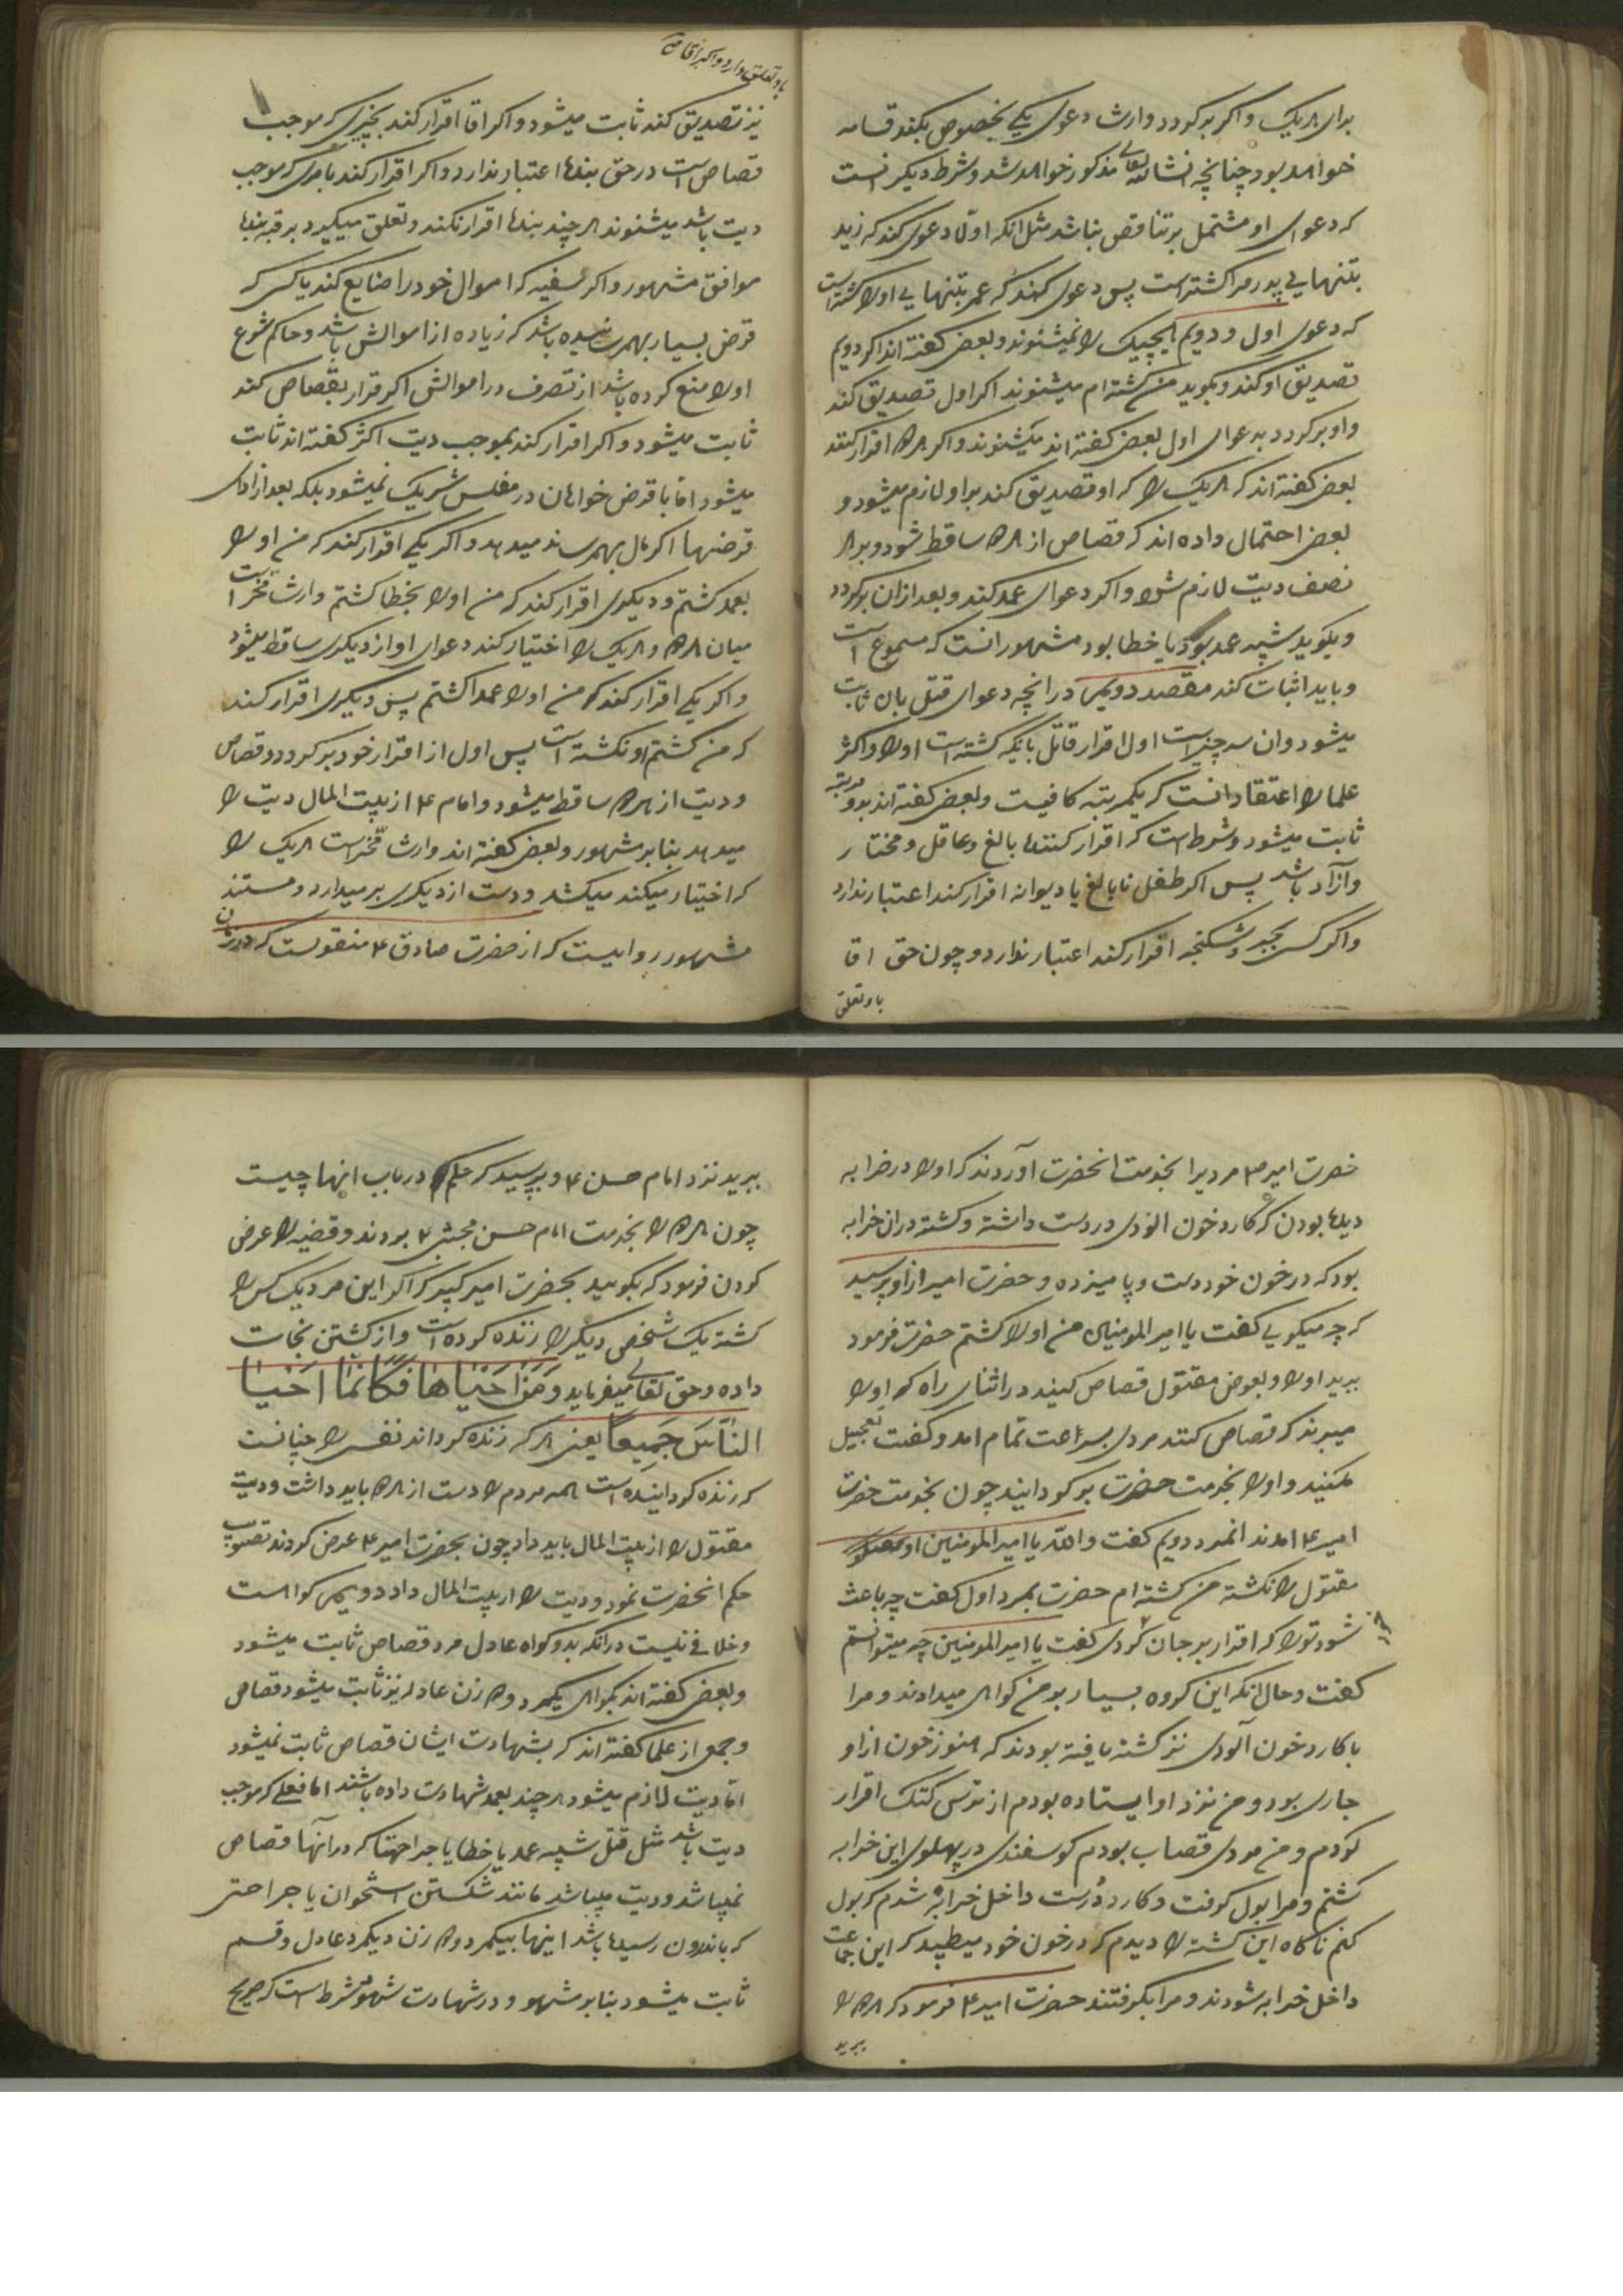 برای هریک و اکر برکردد وارث دعوی یکی بخصوص بکند قسامه
خواهد بود چنانچه انشاالله تعالی مذکور خواهد شد و شرط دیکر انست
که دعوای او مشتمل بر تناقض نباشد مثل انکه اولا دعوی کند که زید
بتنهایی پدر مرا کشته است پس دعوی کند که عمر بتنهایی او را کشته است
که دعوی اول و دویم هیچیک را نمیشنوند و بعضی کفته اند اکر دویم
تصدیق او کند و بکوید من کشته ام میشنوند اکر اول تصدیق کند
و او برکردد بدعوای اول بعضی کفته اند میشنوند و اکر هر دو اقرار کنند
بعضی کفته اند که هریک را که او تصدیق کند بر او لازم میشود و
بعضی احتمال داده اند که قصاص از هر دو ساقط شود و بر هر
نصف دیت لازم شود و اکر دعوای عمد کند و بعد از ان برکردد
و بکوید شبه عمد بود یا خطا بود مشهور انست که مسموع است
و باید اثبات کند مقصد دویم در انچه دعوای قتل بان ثابت
میشود و ان سه چیز است اول اقرار قاتل بانکه کشته است او را و اکثر
علما را اعتقاد انست که یکمرتبه کافیست و بعضی کفته اند بدو مرتبه
ثابت میشود و شرط است که اقرار کننده بالغ و عاقل و مختار
و آزاد باشد پس اکر طفل نابالغ یا دیوانه اقرار کند اعتبار ندارد
و اکر کسی بجبر و شکنجه اقرار کند اعتبار ندارد و چون حق اقا
باو تعلق
باو تعلق دارد و اکر اقا نیز
نیز تصدیق کند ثابت میشود و اکر اقا اقرار کند بچیزی که موجب
قصاص است در حق بنده اعتبار ندارد و اکر اقرار کند بامری که موجب
دیت باشد میشنوند هر چند بنده اقرار نکند و تعلق میکیرد برقبه بنده
موافق مشهور و اکر سفیه که اموال خود را ضایع کند یا کسی که
قرض بسیار بهمرسانیده باشد که زیاده از اموالش باشد و حاکم شرع
او را منع کرده باشد از تصرف در اموالش اکر اقرار بقصاص کند
ثابت میشود و اکر اقرار کند بموجب دیت اکثر کفته اند ثابت
میشود اما با قرض خواهان در مفلس شریک نمیشود بلکه بعد از ادای
قرضها اکر مال بهمرساند میدهد و اکر یکی اقرار کند که من او را
بعمد کشتم و دیکری اقرار کند که من او را بخطا کشتم وارث مخیر است
میان هر دو و هریک را اختیار کند دعوای او از دیکری ساقط میشود
و اکر یکی اقرار کند که من او را عمدا کشتم پس دیکری اقرار کند
که من کشتم او نکشته است پس اول از اقرار خود برکردد قصاص
و دیت از هر دو ساقط میشود و امام ع از بیت المال دیت را
میدهد بنابر مشهور و بعضی کفته اند وارث مخیر است هریک را
که اختیار میکند میکشد و دست از دیکری برمیدارد و مستند
مشهور روایتیست که از حضرت صادق ع منقولست که در زمان
حضرت امیر ع مردیرا بخدمت انحضرت آوردند که او را در خرابه
دیده بودن که کارد خون الودی در دست داشته و کشته در ان خرابه
بود که در خون خود دست و پا میزده و حضرت امیر از او پرسید
که چه میکویی کفت یا امیر المومنین من او را کشتم حضرت فرمود
ببرید او را و بعوض مقتول قصاص کنید در اثنای راه که او را
میبرند که قصاص کنند مردی بسراعت تمام امد و کفت تعجیل
مکنید و او را بخدمت حضرت برکردانید چون بخدمت حضرت
امیر ع امدند انمرد دویم کفت والله یا امیر المومنین او
مقتول را نکشته من کشته ام حضرت بمرد اول کفت چه باعث
شود تو را که اقرار بر جان خود کردی کفت یا امیر المومنین چه میتوانستم
کفت و حال انکه این کروه بسیار بر من کواهی میدادند و مرا
با کارد خون آلودی نزد کشته یافته بودند که هنوز خون از او
جاری بود و من نزد او ایستاده بودم از ترس کتک اقرار
کردم و من مردی قصاب بودم کوسفندی در پهلوی این خرابه
کشتم و مرا بول کرفت و کارد در دست داخل خرابه شدم که بول
کنم ناکاه این کشته را دیدم که در خون خود میطپید که این جماعت
داخل خرابه شودند و مرا بکرفتند حضرت امیر ع فرمود که هر دو را
ببرید
ببرید نزد امام حسن ع و بپرسید که حکم در باب اینها چیست
چون هر دو را بخدمت امام حسن مجتبی ع بردند و قضیه را عرض
کردن فرمود که بکویید بحضرت امیر کبیر که اکر این مرد یک کس را
کشته یک شخص دیکر را زنده کرده است و از کشتن نجات
داده و حق تعالی میفرماید وَ مَنْ اَحْیَاهَا فَکَاَنَّمَا اَحْیَا
النَّاسَ جَمِیعًا یعنی هر که زنده کرداند نفسی را چنانست
که زنده کردانیده است همه مردم را دست از هر دو باید داشت و دیت
مقتول را از بیت المال باید داد چون بحضرت امیر ع عرض کردند تصویب
حکم انحضرت نمود و دیت را از بیت المال داد دویم کواهست
و خلافی نیست در انکه بدو کواه عادل مرد قصاص ثابت میشود
و بعضی کفته اند بکواهی یکمرد و دو زن عادله نیز ثابت میشود قصاص
و جمعی از علما کفته اند که بشهادت ایشان قصاص ثابت نمیشود
اما دیت لازم میشود هر چند بعمد شهادت داده باشند اما فعلی که موجب
دیت باشد مثل قتل شبیه عمد یا خطا یا جراحتها که در انها قصاص
نمیباشد و دیت میباشد مانند شکستن استخوان یا جراحتی
که باندرون رسیده باشد اینها بیکمرد و دو زن و یکمرد عادل و قسم
ثابت میشود بنابر مشهور و در شهادت شهود شرط است که صریح